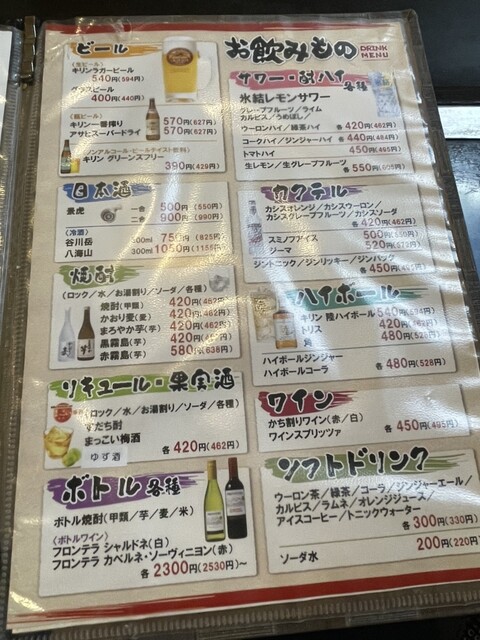 お飲みもの DRINK MENU
ビール
(生ビール)
キリンラガービール
540円(594円)
グラスビール
400円(440円)
(瓶ビール)
キリン一番搾り 570円(627円)
アサヒスーパードライ 570円(627円)
(ノンアルコール・ビールテイスト飲料)
キリン グリーンズフリー
390円(429円)
日本酒
景虎 一合 500円(550円)
二合 900円(990円)
(冷酒)
谷川岳 300ml 750円(825円)
八海山 300ml 1050円(1155円)
焼酎
(ロック/水/お湯割り/ソーダ/各種)
焼酎(甲類) 420円(462円)
かおり麦(麦) 420円(462円)
まろやか芋(芋) 420円(462円)
黒霧島(芋) 420円(462円)
赤霧島(芋) 580円(638円)
リキュール・果実酒
(ロック/水/お湯割り/ソーダ/各種)
すだち酎
まっこい梅酒
ゆず酒
各 420円(462円)
ボトル 各種
ボトル焼酎(甲類/芋/麦/米)
(ボトルワイン)
フロンテラ シャルドネ(白)
フロンテラ カベルネ・ソーヴィニヨン(赤)
各 2300円(2530円)〜
サワー・酎ハイ 各種
氷結レモンサワー
グレープフルーツ/ライム
カルピス/うめぼし/
ウーロンハイ/緑茶ハイ 各 420円(462円)
コークハイ/ジンジャーハイ 各 440円(484円)
トマトハイ 450円(495円)
生レモン/生グレープフルーツ
各 550円(605円)
カクテル
カシスオレンジ/カシスウーロン/
カシスグレープフルーツ/カシスソーダ
各 420円(462円)
スミノフアイス 500円(550円)
ジーマ 520円(572円)
ジントニック/ジンリッキー/ジンバック
各 450円(495円)
ハイボール
キリン 陸ハイボール 540円(594円)
トリス 420円(462円)
角 480円(528円)
ハイボールジンジャー
ハイボールコーラ 各 480円(528円)
ワイン
かち割りワイン(赤/白)
ワインスプリッツァ 各 450円(495円)
ソフトドリンク
ウーロン茶/緑茶/コーラ/ジンジャーエール/
カルピス/ラムネ/オレンジジュース/
アイスコーヒー/トニックウォーター
各 300円(330円)
ソーダ水 200円(220円)